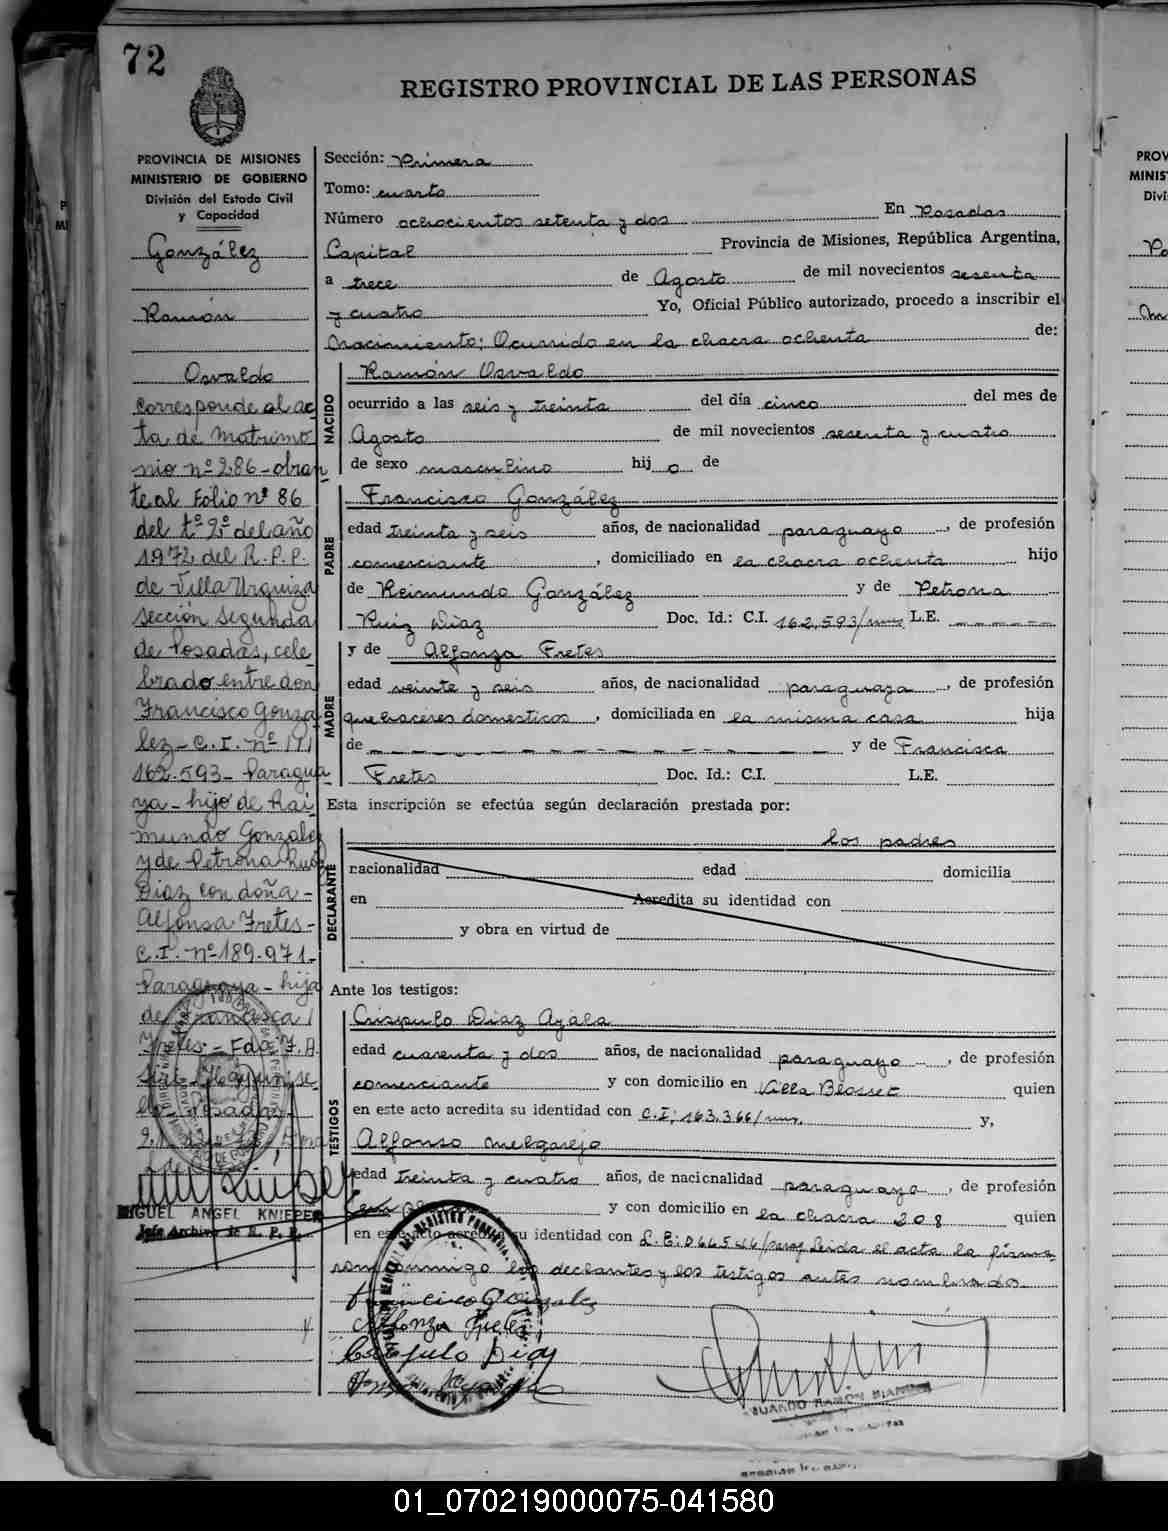 72
REGISTRO PROVINCIAL DE LAS PERSONAS
PROVINCIA DE MISIONES
MINISTERIO DE GOBIERNO
División del Estado Civil
y Capacidad
González
Ramón
Osvaldo
Corresponde al ac
ta de Matrimo
nio nº 286 - obran
te al Folio nº 86
del tº 2º del año
1972 del R. P. P.
de Villa Urquiza
sección segunda
de Posadas, cele
brado entre don
Francisco Gonza
lez - C. I. nº
162.593 - Paragua
ya - hijo de Rai
mundo Gonzalez
y de Petrona Ruiz
Diaz con doña -
Alfonsa Fretes -
C. I. nº 189.971 -
Paraguaya - hija
de Francisca
Fretes - Fdo F. A.
MIGUEL ANGEL KNIEPER
Jefe Archivo de R. P. P.
Sección: Primera
Tomo: cuarto
Número ochocientos setenta y dos En Posadas
Capital Provincia de Misiones, República Argentina,
a trece de Agosto de mil novecientos sesenta
y cuatro Yo, Oficial Público autorizado, procedo a inscribir el
Nacimiento; Ocurrido en la chacra ochenta de:
NACIDO
Ramón Osvaldo
ocurrido a las seis y treinta del día cinco del mes de
Agosto de mil novecientos sesenta y cuatro
de sexo masculino hij o de
PADRE
Francisco González
edad treinta y seis años, de nacionalidad paraguayo, de profesión
comerciante, domiciliado en la chacra ochenta hijo
de Reimundo González y de Petrona
Ruiz Diaz Doc. Id.: C.I. 162,593/mnes L.E.
MADRE
y de Alfonza Fretes
edad veinte y seis años, de nacionalidad paraguaya, de profesión
quehaceres domesticos, domiciliada en la misma casa hija
de y de Francisca
Fretes Doc. Id.: C.I. L.E.
Esta inscripción se efectúa según declaración prestada por:
DECLARANTE
los padres
nacionalidad edad domicilia
en Acredita su identidad con
y obra en virtud de
Ante los testigos:
TESTIGOS
Crispulo Diaz Ayala
edad cuarenta y dos años, de nacionalidad paraguayo, de profesión
comerciante y con domicilio en Villa Blosset quien
en este acto acredita su identidad con C.I; 163,366/mns, y,
Alfonso Melgarejo
edad treinta y cuatro años, de nacionalidad paraguayo, de profesión
y con domicilio en la chacra 208 quien
en este acto acredita su identidad con Leida el acta la firma
ron conmigo los declantes y los testigos antes nombrados.
Francisco Gonzalez
Alfonza Fretes
Crispulo Diaz
EDUARDO RAMÓN
PROV
MINIS
Divi
01_070219000075-041580